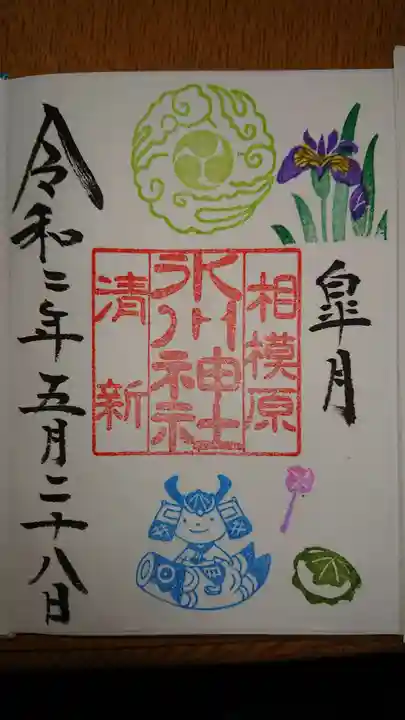 皐月
相模原
氷川神社
清新
令和二年五月二十八日